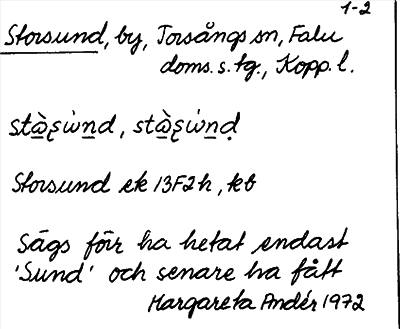 1-2
Storsund, by, Torsångs sn, Falu
doms. s. tg., Kopp. l.
Storsund ek 13F2h, kb
Sägs förr ha hetat endast
'Sund' och senare ha fått
Margareta Andér 1972